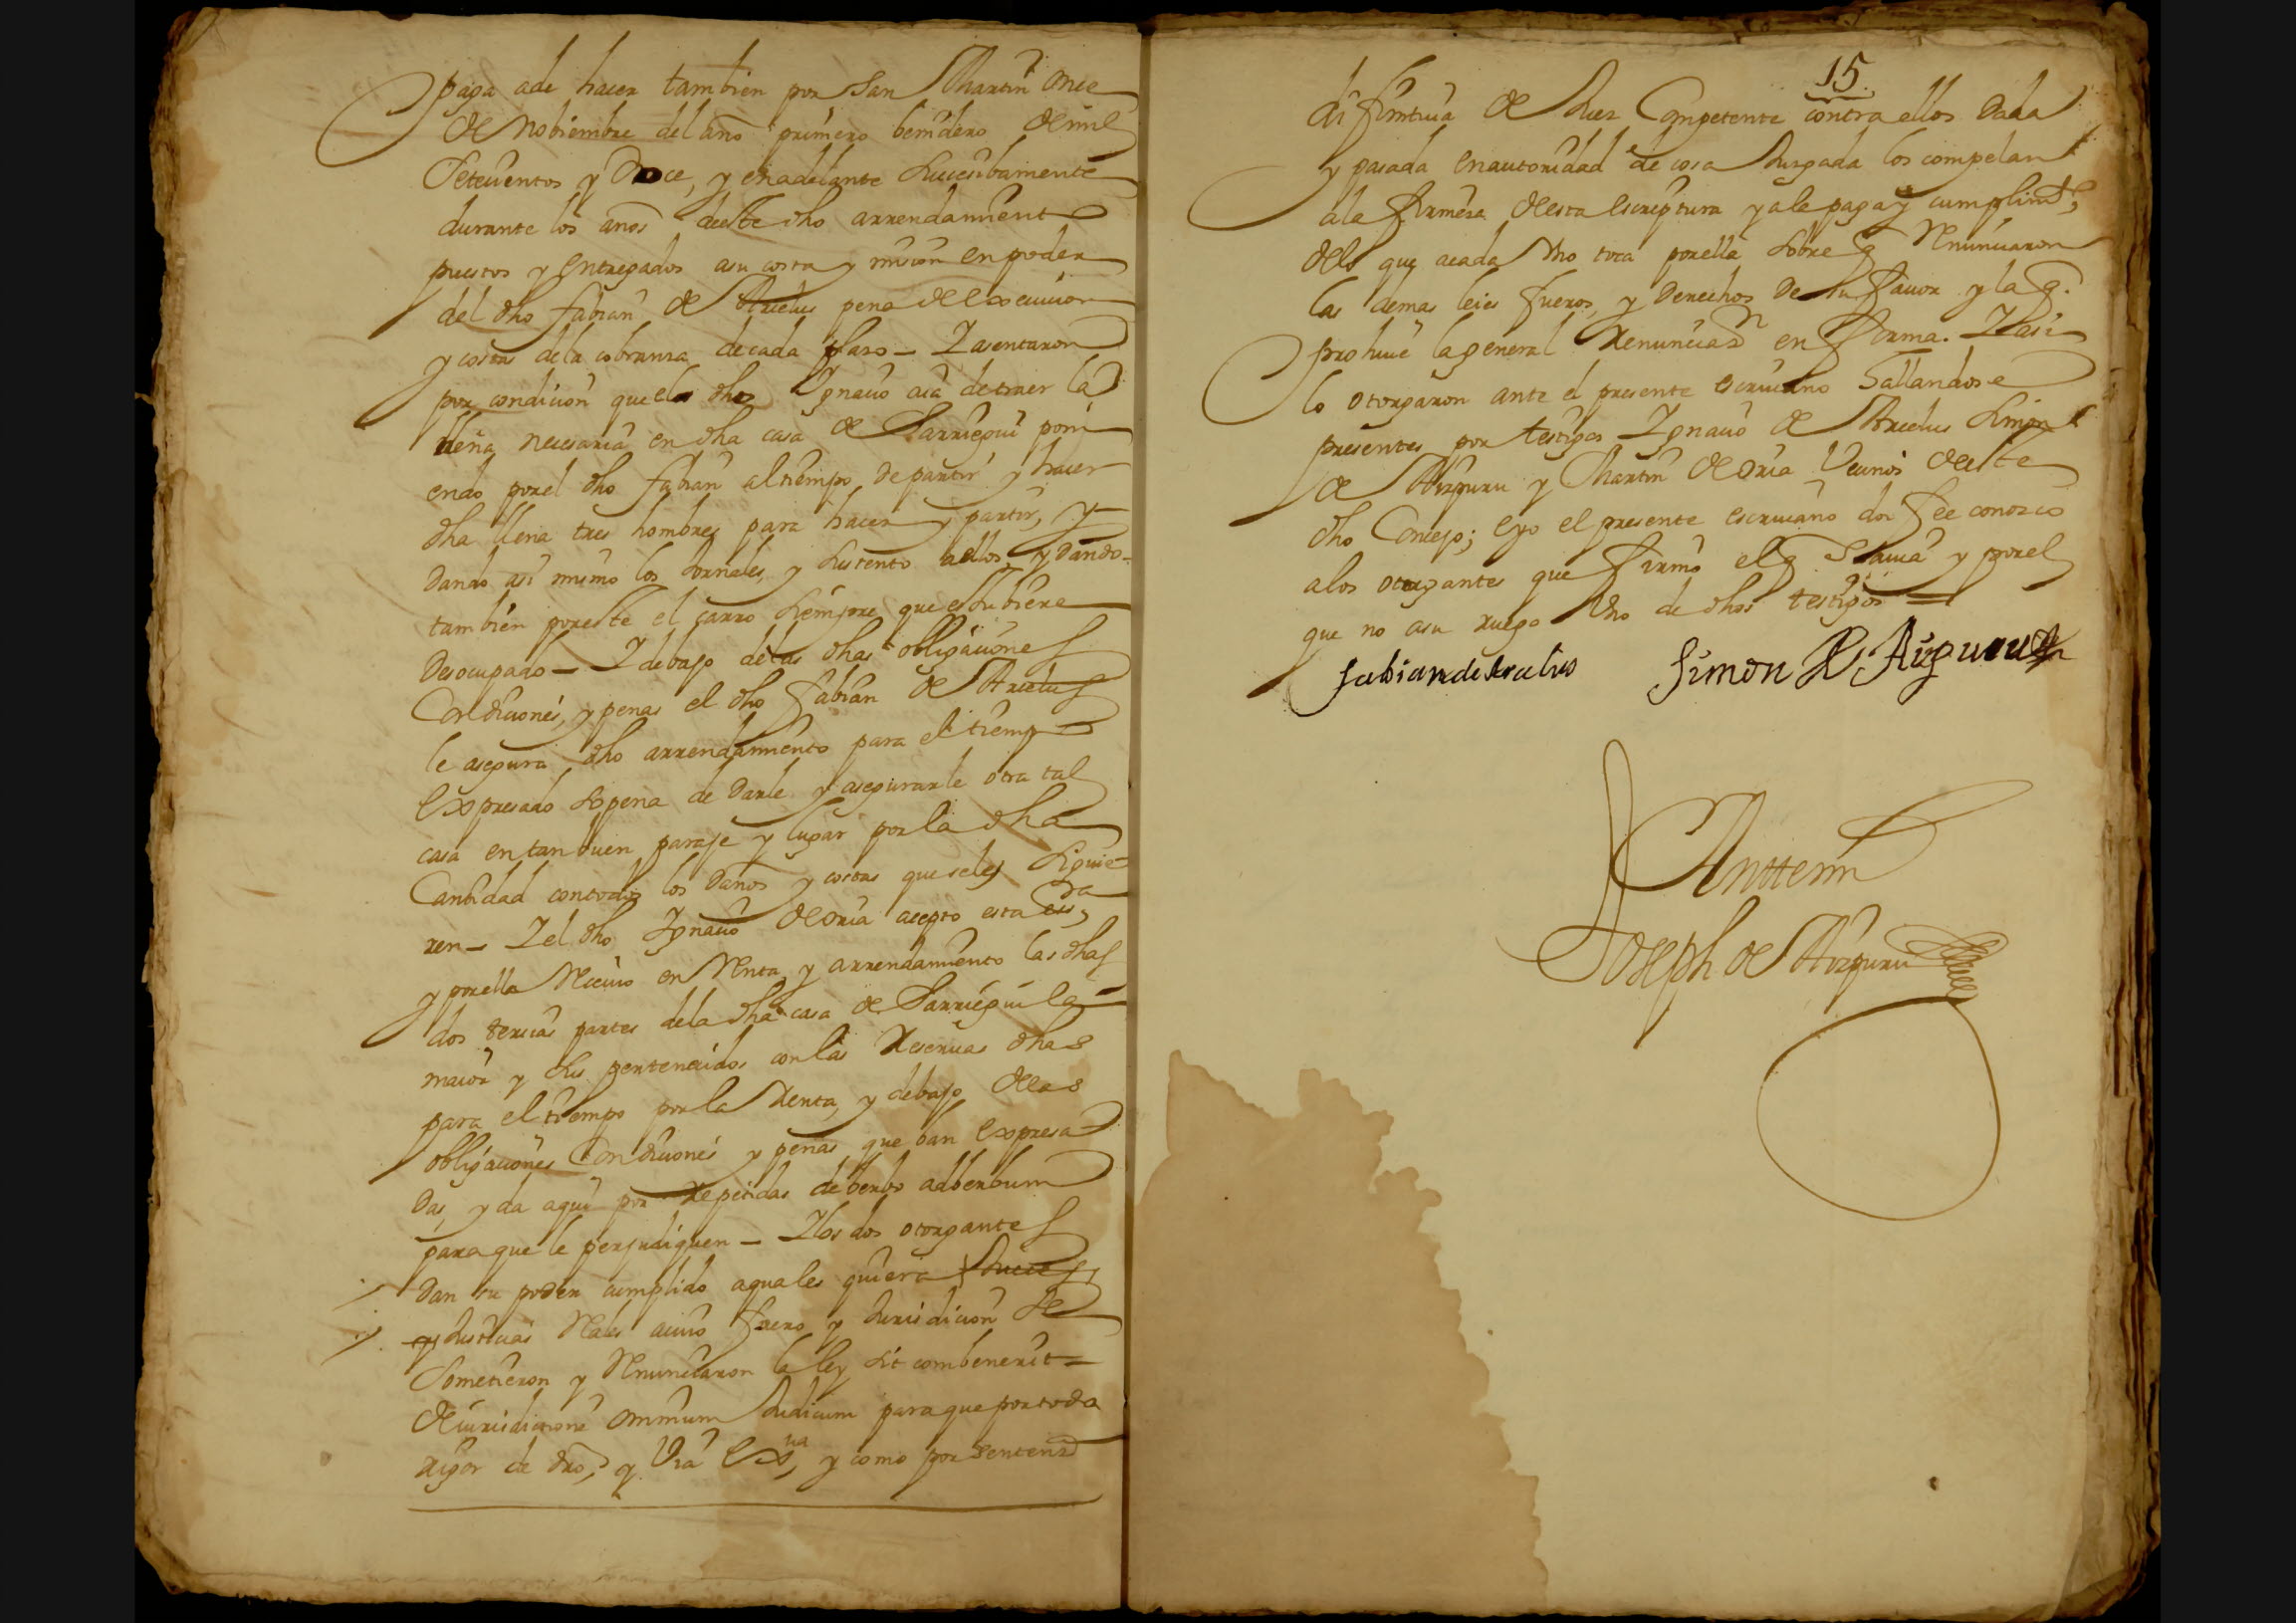 paga ade hacer tambien por san Martin onçe
de Nobiembre del año primero benidero de mil
Setecientos y Doce, y en adelante subcesibamente
durante los años deeste dho arrendamiento
puestos y entregados asu costa y mision en poder
del dho fabian de Arcelus pena de execucion
y costas dela cobranza de cada plazo – Y asentaron
por condicion que el dho Ygnacio aia de traer la
lleña necesaria en dha casa de Sarriegui poni
endo por el dho fabian al tiempo de partir y hacer
dha lleña tres hombres para hacer y partir, y
Dando asi mismo los Jornales, y sustento aellos, y Dando
tambien por este el carro siempre que estubiere
Desocupado – Y debajo delas dhas obligaciones
Condiciones, y penas el dho fabian de Arcelus
le asegura dho arrendamiento para el tiempo
expresado so pena de Darle y asegurarle otra tal
casa en tan buen paraje y lugar por la dha
Cantidad con todos los Daños y costas que seles siguie
ren – Y el dho Ygnacio de oria acepto esta essra,
y por ella Recivio en Renta, y arrendamiento las dhas
dos tercias partes dela dha casa de Sarriegui la
maior y sus pertenecidos con las Reservas dhas
para el tiempo por la Renta, y debajo delas
obligaciones Condiciones y penas, que ban expresa
Das, y da aqui por repetidas de berbo adberbum
para que le perjudiquen – Y los dos otorgantes
Dan su poder cumplido aquales quiera Jueces,
y Justicias Reales acuio fuero y Jurisdicion se
Sometieron y Renunciaron la ley sit combenerit
de iurisdicione omnium Judicum para que por todo
rigor de dro, y Via exva, y como por sentenzia
15
difinitiva de Juez Competente contra ellos Dada
y pasada en autoridad de cosa Juzgada los compelan
ala firmeza de esta escriptura y ala paga y cumplimto,
delo que acada Uno toca por ella sobre q Renunciaron
las demas leies fueros, y Derechos De su favor y la q.
prohive la general Renunciazn en forma. Y asi
lo otorgaron ante el presente escrivano hallandose
presentes por testigos Ygnacio de Arcelus Simon
de Aizpuru y Martin de Oria Vecinos deeste
dho Concejo; e yo el presente escrivano doi fee conozco
alos otorgantes que firmo el q savia y por el
que no asu ruego Uno de dhos testigos =
fabian de Arcelus Simon de Aizpuru
Antte mi
Joseph de Aizpuru